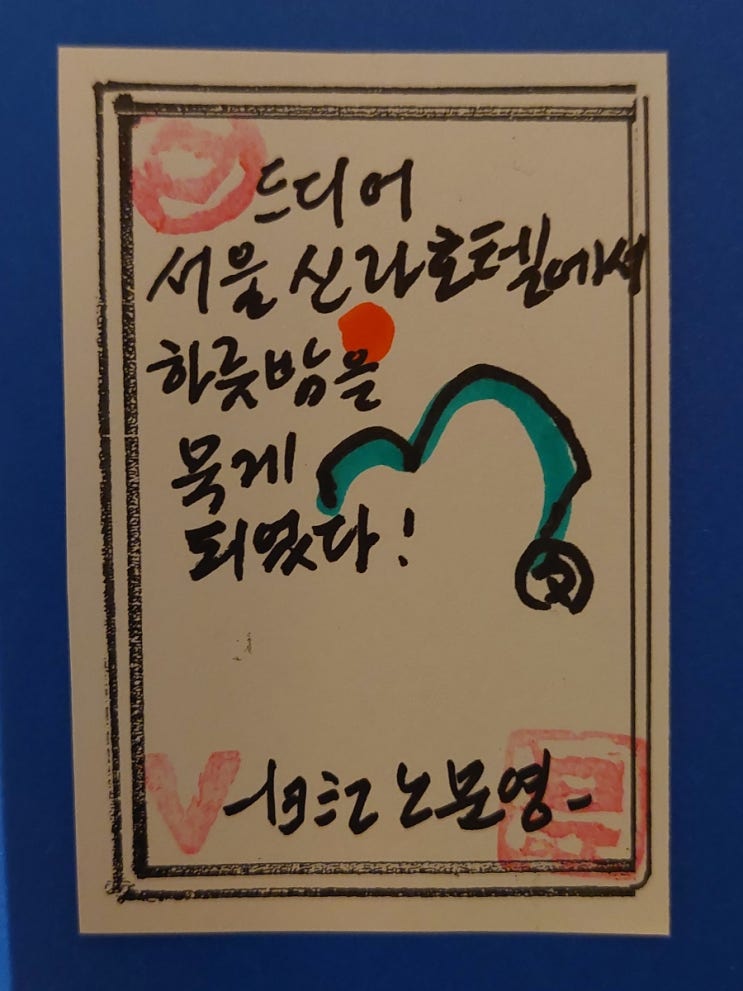 드디어
서울 신라호텔에서
하룻밤을
묵게
되었다!
文
노문영-